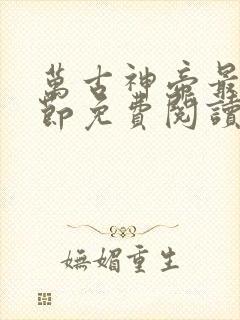 萬古神帝最
節免費閱讀
嫵媚重生